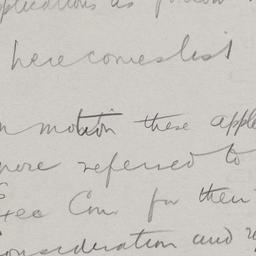 plications as follow
here comes list
n motion these apple
were referred to
Exec Com for their
onsideration and re